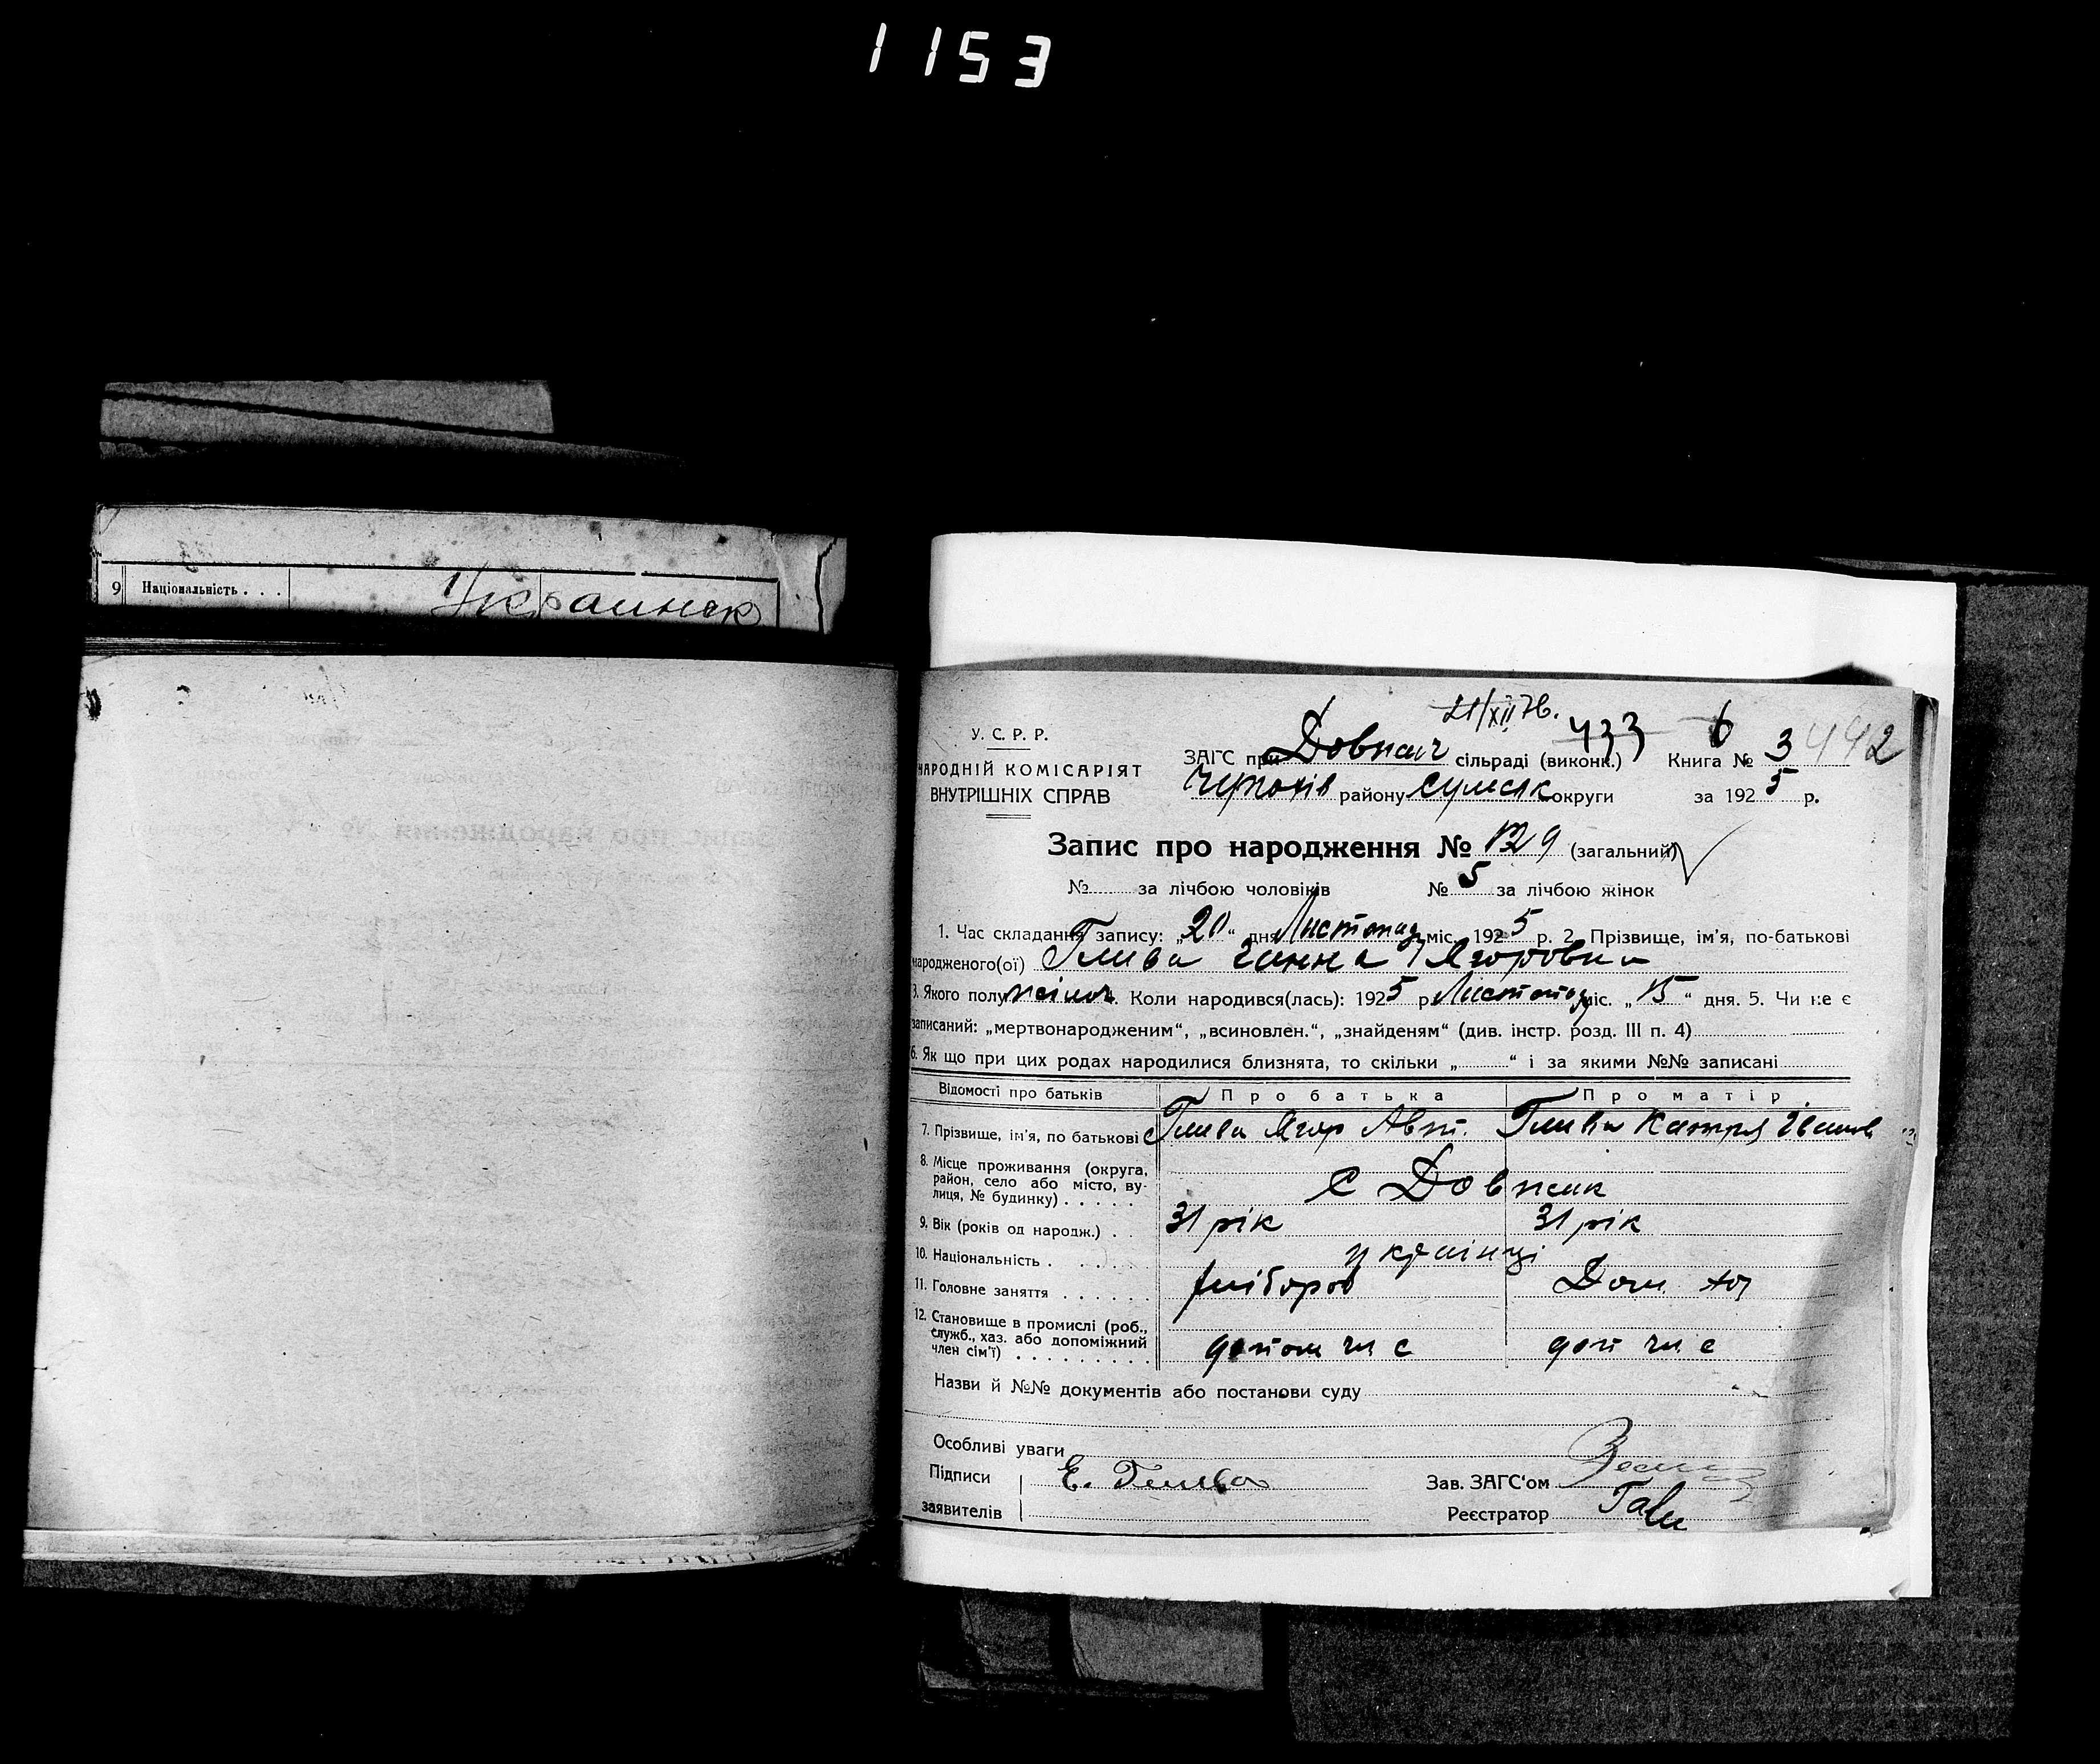 1153
9 Національність . . .
Украинск
21/XII 76.
У. С. Р. Р.
НАРОДНІЙ КОМІСАРІЯТ
ВНУТРІШНІХ СПРАВ
ЗАГС при Довжич сільраді (виконк.) 433 Книга № 3 6 442
району Сумськ округи за 1925 р.
Запис про народження № 129 (загальний)
№ за лічбою чоловіків № 5 за лічбою жінок
1. Час складання запису: „20“ дня Листопад міс. 1925 р. 2. Прізвище, ім'я, по-батькові
народженого(ої) Глива Ганна Ягоровна
3. Якого полу жіноч. Коли народився(лась): 1925 р. Листопад міс. „15“ дня. 5. Чи не є
записаний: „мертвонародженим“, „всиновлен.“, „знайденям“ (див. інстр. розд. III п. 4)
6. Як що при цих родах народилися близнята, то скільки „ “ і за якими №№ записані
Відомості про батьків Про батька Про матір
7. Прізвище, ім'я, по батькові Глива Ягор Авт. Глива Катря Іванов
8. Місце проживання (округа,
район, село або місто, ву-
лиця, № будинку) . . . . .
с Довжик
9. Вік (років од народж.) . . 31 рік 31 рік
10. Національність . . . . . українці
11. Головне заняття . . . . . . хлібороб Дом.
12. Становище в промислі (роб.,
служб., хаз. або допоміжний
член сім'ї) . . . . . . . . .
допом чл с доп чл с
Назви й №№ документів або постанови суду
Особливі уваги
Підписи
заявителів
Е. Глива
Зав. ЗАГС'ом
Реєстратор